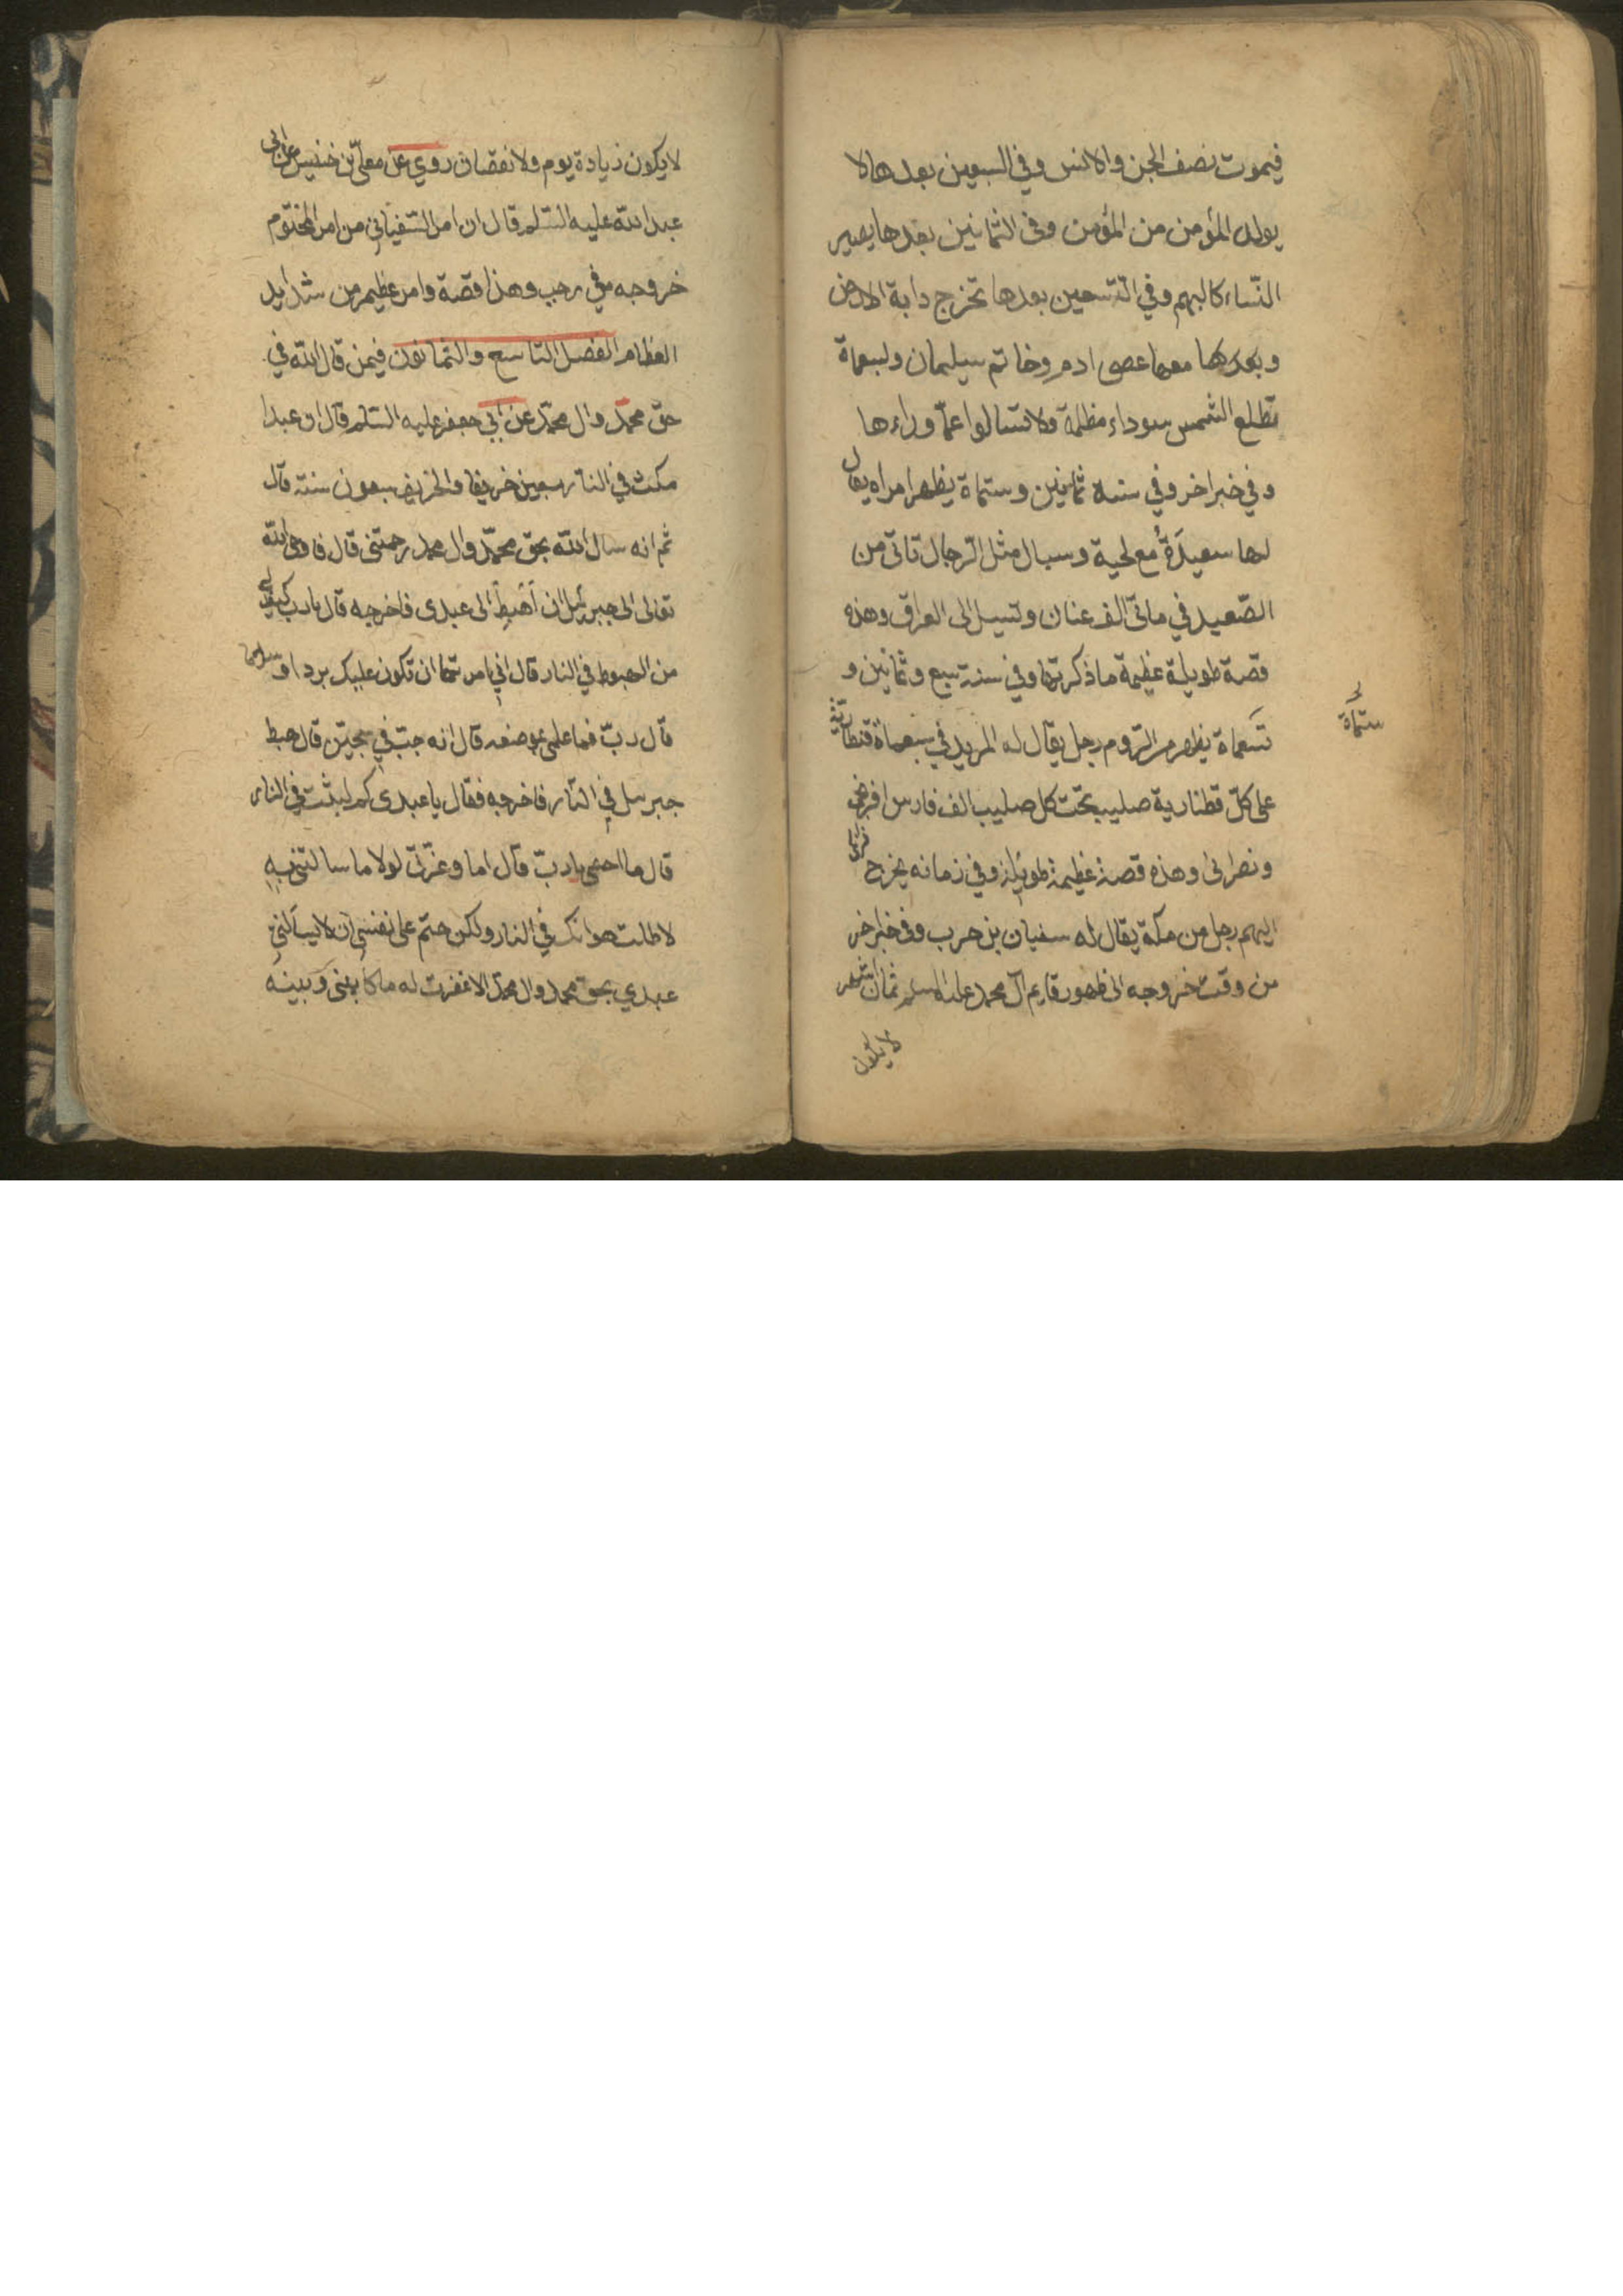 فيموت نصف الجن والانس وفي السبعين بعدها لا
يولد المؤمن من المؤمن وفى الثمانين بعدها يصير
النساء كالبهم وفي التسعين بعدها تخرج دابة الارض
وبعدها معها عصى ادم وخاتم سيلمان ولسبعماة
تطلع الشمس سوداء مظلمة ولا تسالوا عمّا وراءها
وفي خبر اخر وفي سنة ثمانين وستماة يظهر امراه يقال
لها سعيدَةُ مع لحية وسبال مثل الرجال تاتى من
الصّعيد في ماتى الف عنان وتسيل الى العراق وهذه
قصة طويلة عظيمة ما ذكرتها وفي سنة سبع وثمانين و
ستماة
تسعماة يظهر من الروم رجل يقال له المزيد في سبعماة قنطارية
على كلّ قطنارية صليب تحت كل صليب الف فارس افرنجى
ونصرانى وهذه قصة عظيمة طويلة وفي زمانه يخرج
اليهم رجل من مكة يقال له سفيان بن حرب وفى خبر اخر
من وقت خروجه الى ظهور قايم آل محمد عليه السلم ثمان اشهر
لا يكون
لا يكون زيادة يوم ولا نقصان روي عن معلّى بن خنيس عن ابى
عبد الله عليه السّلم قال ان امر السّفياني من امر المختوم
خروجه في رجب وهذا قصة وامر عظيم من شدايد
العظام الفصل التاسع والثمانون فيمن قال الله في
حق محمّد وال محمّد عن ابي جعفر عليه السّلم قال ان عبدا
مكث في النار سبعين خريفا والخريف سبعون سنة قال
ثم انه سال الله بحق محمّد وال محمد رحمتنى قال فاوحى الله
تعالى الى جبرئيل ان اَهبِط الى عبدى فاخرجه قال يارب كيف لى
من الهبوط في النار قال اني امرتها ان تكون عليك بردا وسلاما
قال ربّ فما علمى بموضعه قال انه جبّ في سجيّن قال هبط
جبرييل في النّار فاخرجه فقال يا عبدى كم لبثت في النار
قال ما احصى يا ربّ قال اما وعزّتى لولا ما سالتنى به
لاطلت هوانك في النار ولكن حتم على نفسى ان لا يسالنى
عبدي بحق محمد وال محمّد الا غفرت له ما كان بينى وبينه